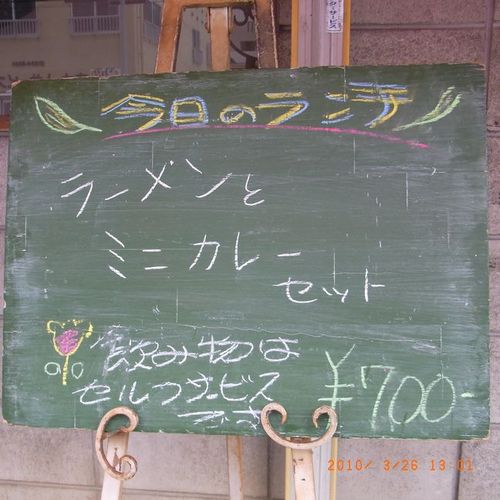 今日のランチ
ラーメンと
ミニカレー
セット
飲み物は
セルフサービス
です
¥700-
2010/ 3/26 13:01